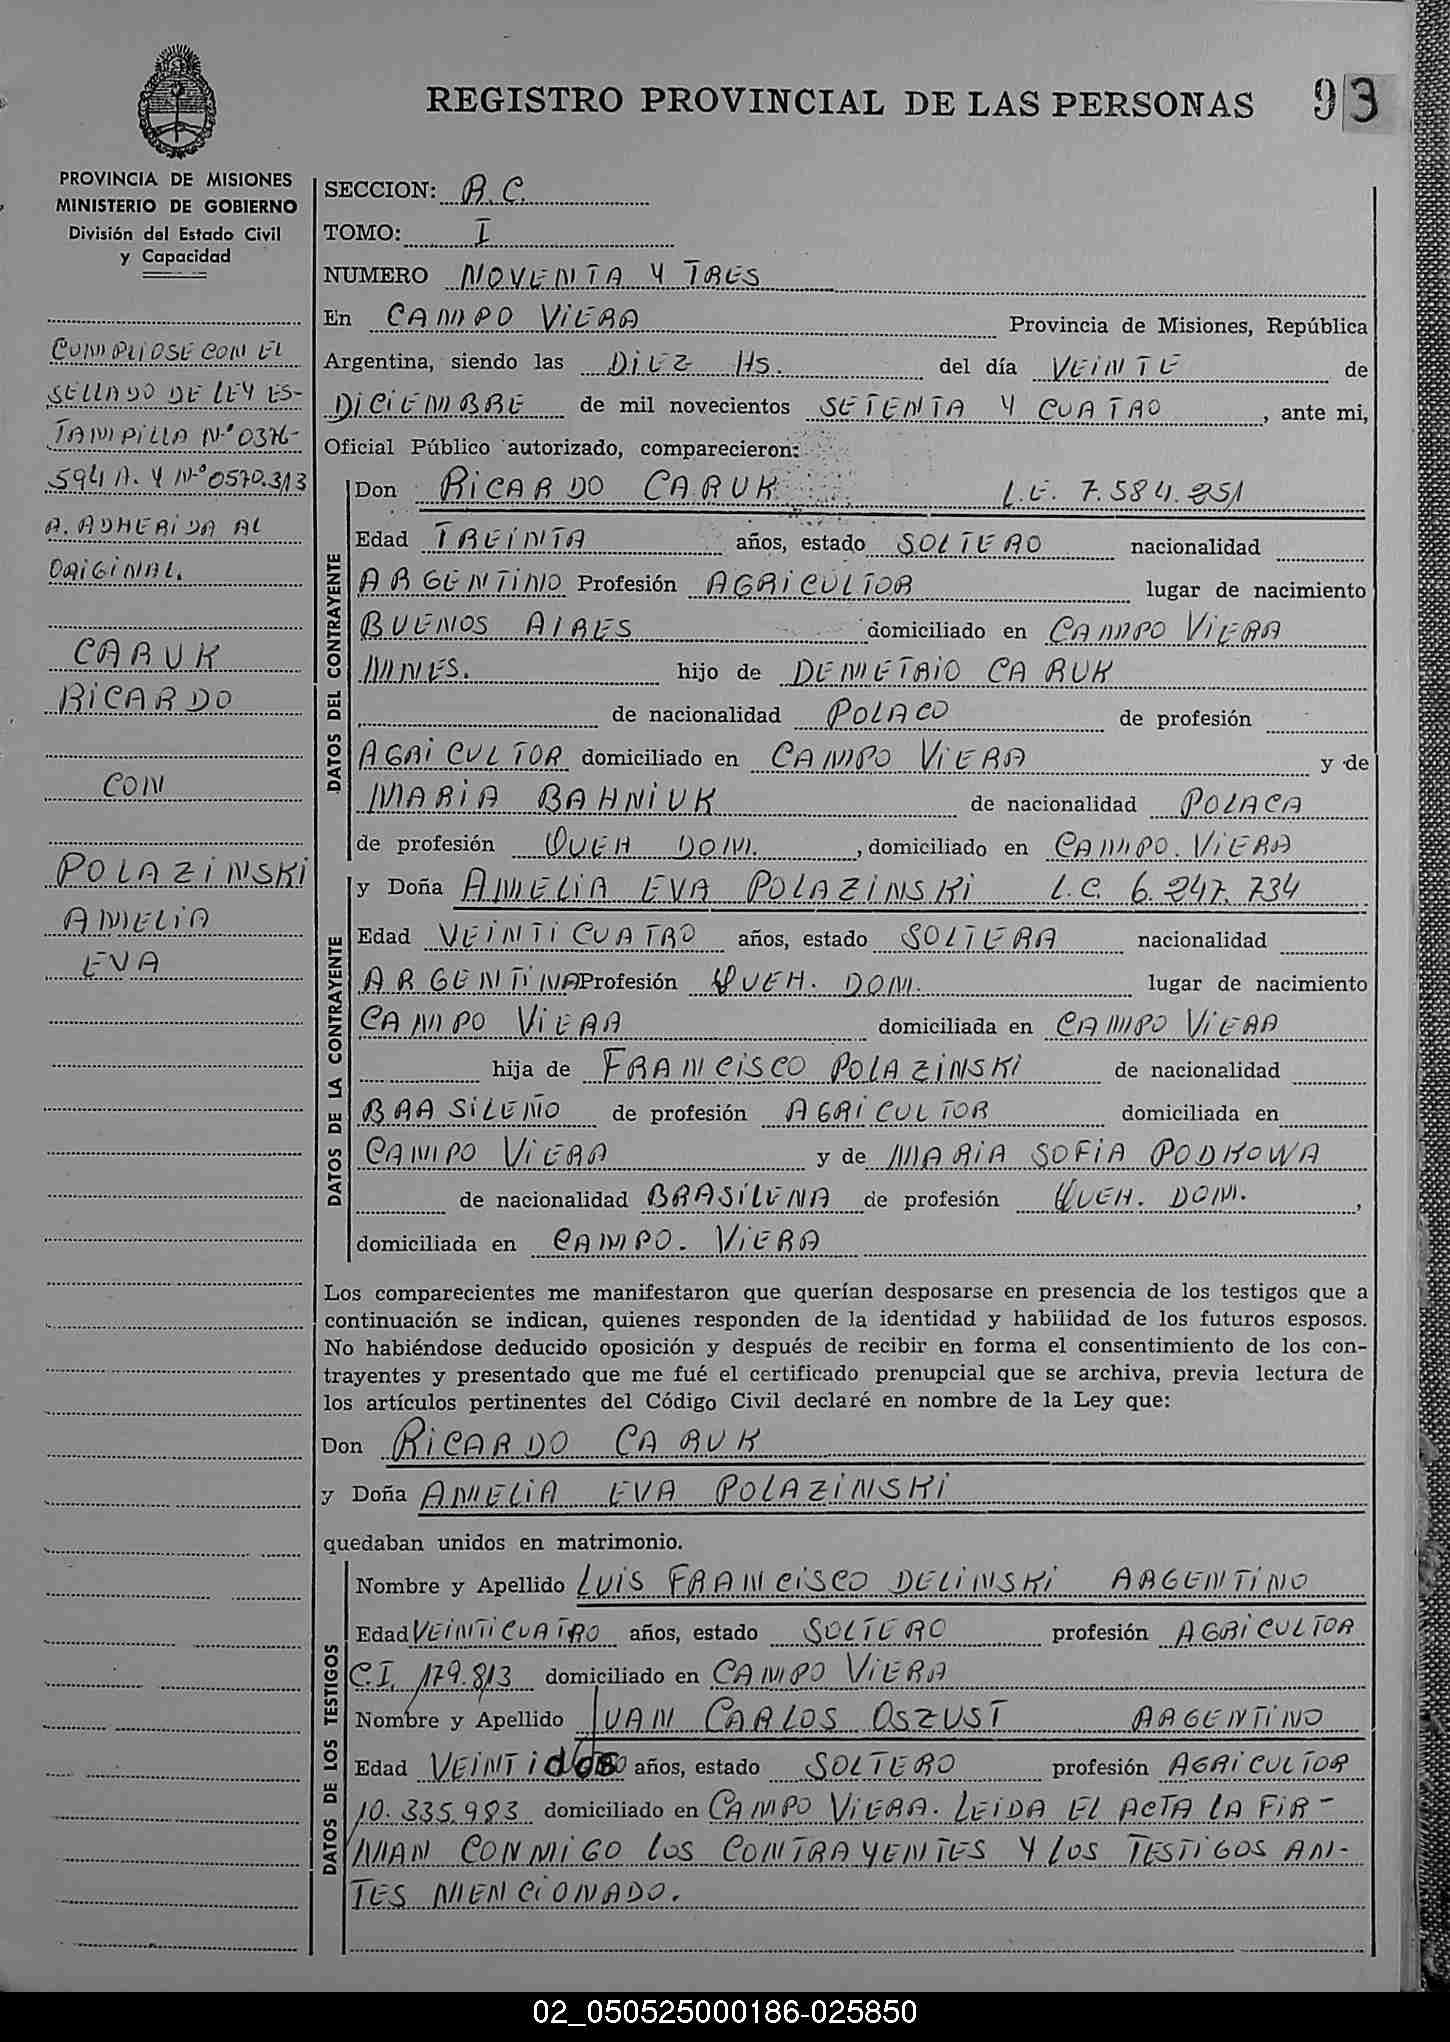 REGISTRO PROVINCIAL DE LAS PERSONAS 93
PROVINCIA DE MISIONES
MINISTERIO DE GOBIERNO
División del Estado Civil
y Capacidad
CUMPLIOSE CON EL
SELLADO DE LEY ES-
TAMPILLA Nº 0376-
594 A. Y Nº 0570.313
A. ADHERIDA AL
ORIGINAL.
CARUK
RICARDO
CON
POLAZINSKI
AMELIA
EVA
SECCION: R.C.
TOMO: I
NUMERO NOVENTA Y TRES
En CAMPO VIERA Provincia de Misiones, República
Argentina, siendo las DIEZ Hs. del día VEINTE de
DICIEMBRE de mil novecientos SETENTA Y CUATRO, ante mi,
Oficial Público autorizado, comparecieron:
DATOS DEL CONTRAYENTE
Don RICARDO CARUK L.E. 7.584.251
Edad TREINTA años, estado SOLTERO nacionalidad
ARGENTINO Profesión AGRICULTOR lugar de nacimiento
BUENOS AIRES domiciliado en CAMPO VIERA
MNES. hijo de DEMETRIO CARUK
de nacionalidad POLACO de profesión
AGRICULTOR domiciliado en CAMPO VIERA y de
MARIA BAHNIUK de nacionalidad POLACA
de profesión QUEH DOM., domiciliado en CAMPO. VIERA
DATOS DE LA CONTRAYENTE
y Doña AMELIA EVA POLAZINSKI L.C. 6.247.734
Edad VEINTICUATRO años, estado SOLTERA nacionalidad
ARGENTINA Profesión QUEH. DOM. lugar de nacimiento
CAMPO VIERA domiciliada en CAMPO VIERA
hija de FRANCISCO POLAZINSKI de nacionalidad
BRASILEÑO de profesión AGRICULTOR domiciliada en
CAMPO VIERA y de MARIA SOFIA PODKOWA
de nacionalidad BRASILENA de profesión QUEH. DOM.,
domiciliada en CAMPO. VIERA
Los comparecientes me manifestaron que querían desposarse en presencia de los testigos que a
continuación se indican, quienes responden de la identidad y habilidad de los futuros esposos.
No habiéndose deducido oposición y después de recibir en forma el consentimiento de los con-
trayentes y presentado que me fué el certificado prenupcial que se archiva, previa lectura de
los artículos pertinentes del Código Civil declaré en nombre de la Ley que:
Don RICARDO CARUK
y Doña AMELIA EVA POLAZINSKI
quedaban unidos en matrimonio.
DATOS DE LOS TESTIGOS
Nombre y Apellido LUIS FRANCISCO DELINSKI ARGENTINO
Edad VEINTICUATRO años, estado SOLTERO profesión AGRICULTOR
C.I. 179.813 domiciliado en CAMPO VIERA
Nombre y Apellido JUAN CARLOS OSZUST ARGENTINO
Edad VEINTIdos años, estado SOLTERO profesión AGRICULTOR
10.335.983 domiciliado en CAMPO VIERA. LEIDA EL ACTA LA FIR-
MAN CONMIGO LOS CONTRAYENTES Y LOS TESTIGOS AN-
TES MENCIONADO.
02_050525000186-025850